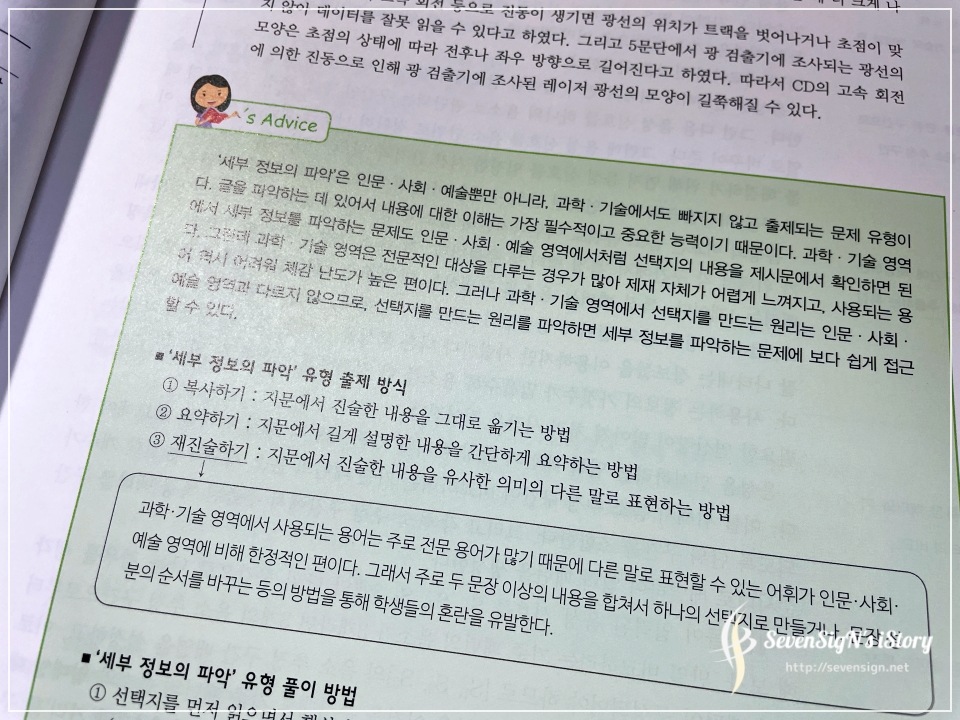 회전 등으로 진동이 생기면 광선의 위치가 트랙을 벗어나거나 초점이 맞
지 않아 데이터를 잘못 읽을 수 있다고 하였다. 그리고 5문단에서 광 검출기에 조사되는 광선의
모양은 초점의 상태에 따라 전후나 좌우 방향으로 길어진다고 하였다. 따라서 CD의 고속 회전
에 의한 진동으로 인해 광 검출기에 조사된 레이저 광선의 모양이 길쭉해질 수 있다.
's Advice
‘세부 정보의 파악’은 인문·사회·예술뿐만 아니라, 과학·기술에서도 빠지지 않고 출제되는 문제 유형이
다. 글을 파악하는 데 있어서 내용에 대한 이해는 가장 필수적이고 중요한 능력이기 때문이다. 과학·기술 영역
에서 세부 정보를 파악하는 문제도 인문·사회·예술 영역에서처럼 선택지의 내용을 제시문에서 확인하면 된
다. 그런데 과학·기술 영역은 전문적인 대상을 다루는 경우가 많아 제재 자체가 어렵게 느껴지고, 사용되는 용
어 역시 어려워 체감 난도가 높은 편이다. 그러나 과학·기술 영역에서 선택지를 만드는 원리는 인문·사회·
예술 영역과 다르지 않으므로, 선택지를 만드는 원리를 파악하면 세부 정보를 파악하는 문제에 보다 쉽게 접근
할 수 있다.
■ ‘세부 정보의 파악’ 유형 출제 방식
① 복사하기 : 지문에서 진술한 내용을 그대로 옮기는 방법
② 요약하기 : 지문에서 길게 설명한 내용을 간단하게 요약하는 방법
③ 재진술하기 : 지문에서 진술한 내용을 유사한 의미의 다른 말로 표현하는 방법
과학·기술 영역에서 사용되는 용어는 주로 전문 용어가 많기 때문에 다른 말로 표현할 수 있는 어휘가 인문·사회·
예술 영역에 비해 한정적인 편이다. 그래서 주로 두 문장 이상의 내용을 합쳐서 하나의 선택지로 만들거나, 문장 성
분의 순서를 바꾸는 등의 방법을 통해 학생들의 혼란을 유발한다.
SevenSigN's iStory
http://sevensign.net
■ ‘세부 정보의 파악’ 유형 풀이 방법
① 선택지를 먼저 읽으면서